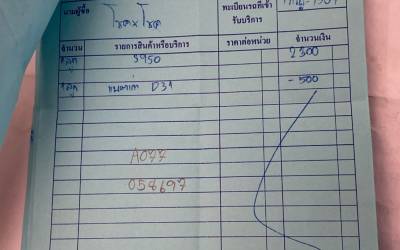 นามผู้ซื้อ โชค x โชค
ทะเบียนรถที่เข้ารับบริการ
จำนวน รายการสินค้าหรือบริการ ราคาต่อหน่วย จำนวนเงิน
1ลูก S950 2300
1ลูก แบตเก่า D31 - 500
A077
058697